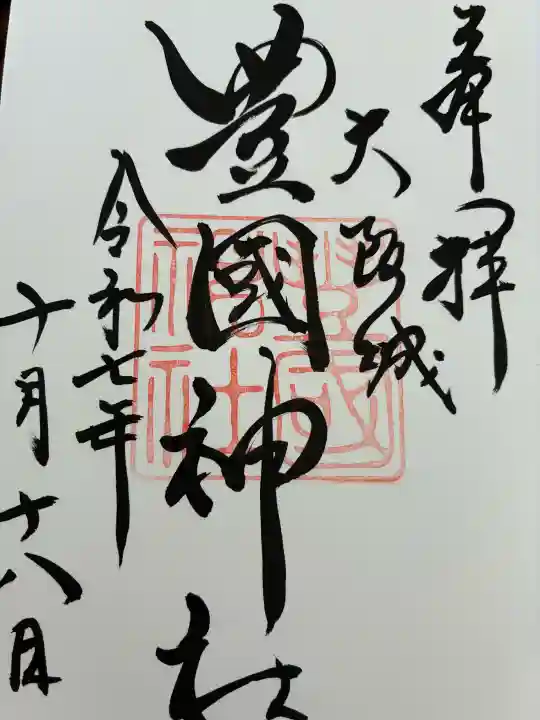 奉拝
大阪城
豊國神社
令和七年
十月十八日
豊國
神社